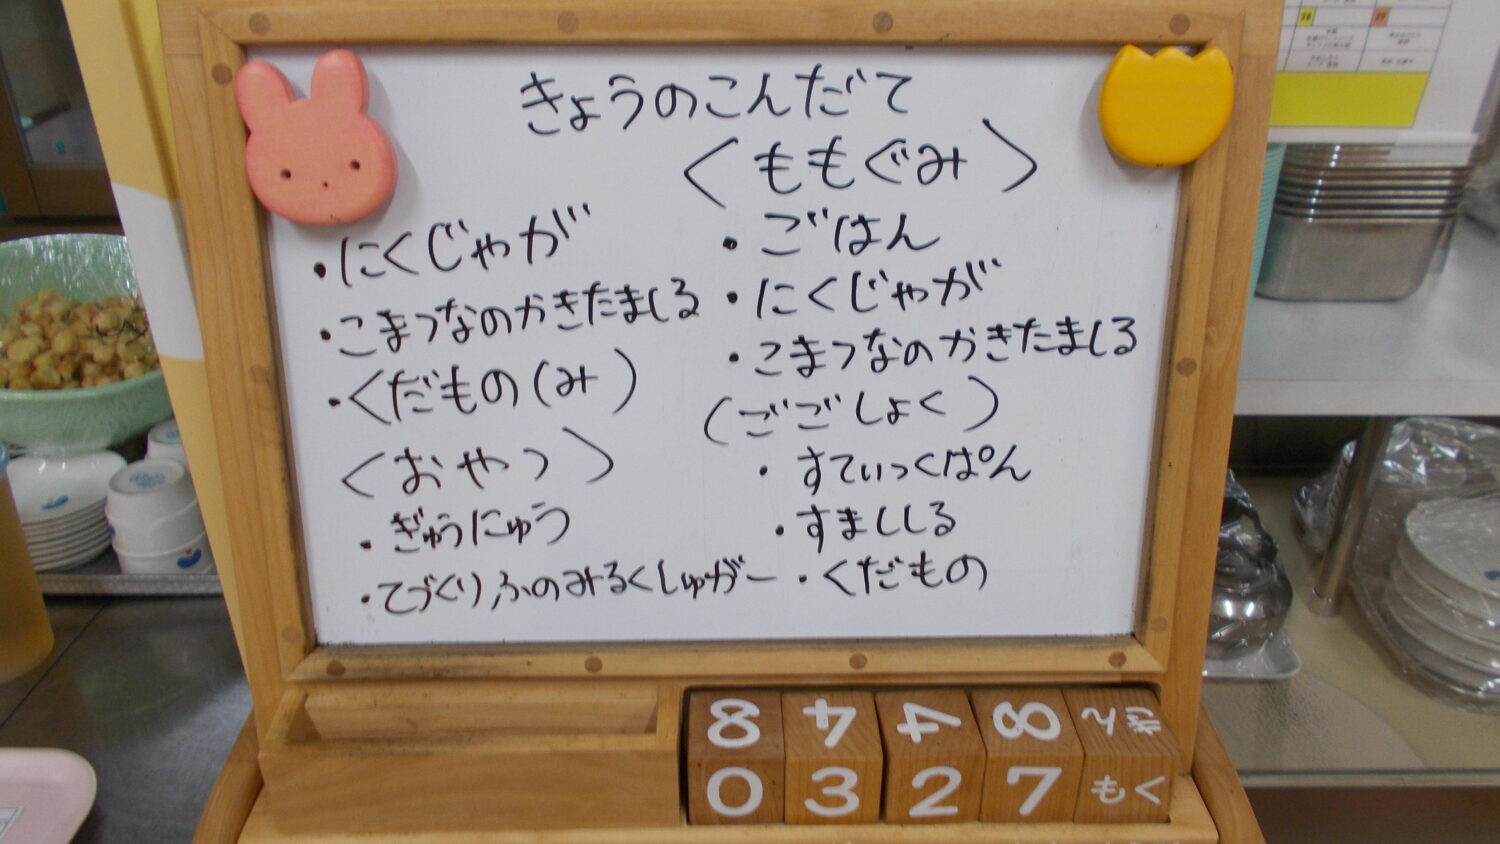 きょうのこんだて
・にくじゃが
・こまつなのかきたましる
・くだもの(み)
〈おやつ〉
・ぎゅうにゅう
・てづくりふのみるくしゅがー
〈ももぐみ〉
・ごはん
・にくじゃが
・こまつなのかきたましる
(ごごしょく)
・すてぃっくぱん
・すましじる
・くだもの
8 4 4 8 きん
0 3 2 7 もく